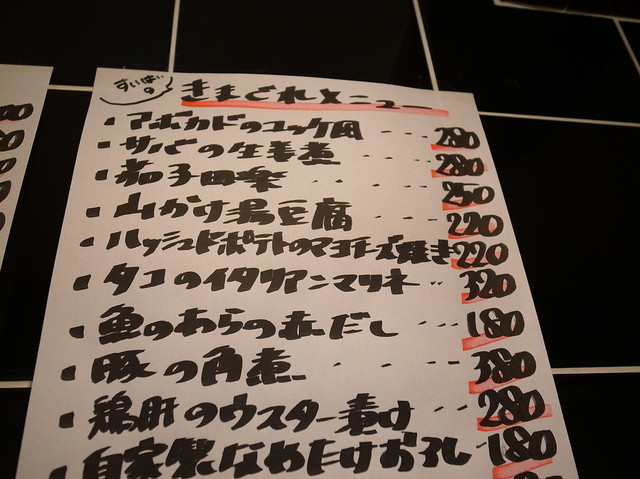 すいばーの
きまぐれメニュー
・アボカドのユッケ風 --- 280
・サバの生姜煮 280
・茄子田楽 --- 250
・山かけ湯豆腐 --- 220
・ハッシュドポテトのマヨチーズ焼き 220
・タコのイタリアンマリネ -- 320
・魚のあらの赤だし --- 180
・豚の角煮 ---- 380
・鶏肝のウスター漬け --- 280
・自家製なめたけおろし -- 180